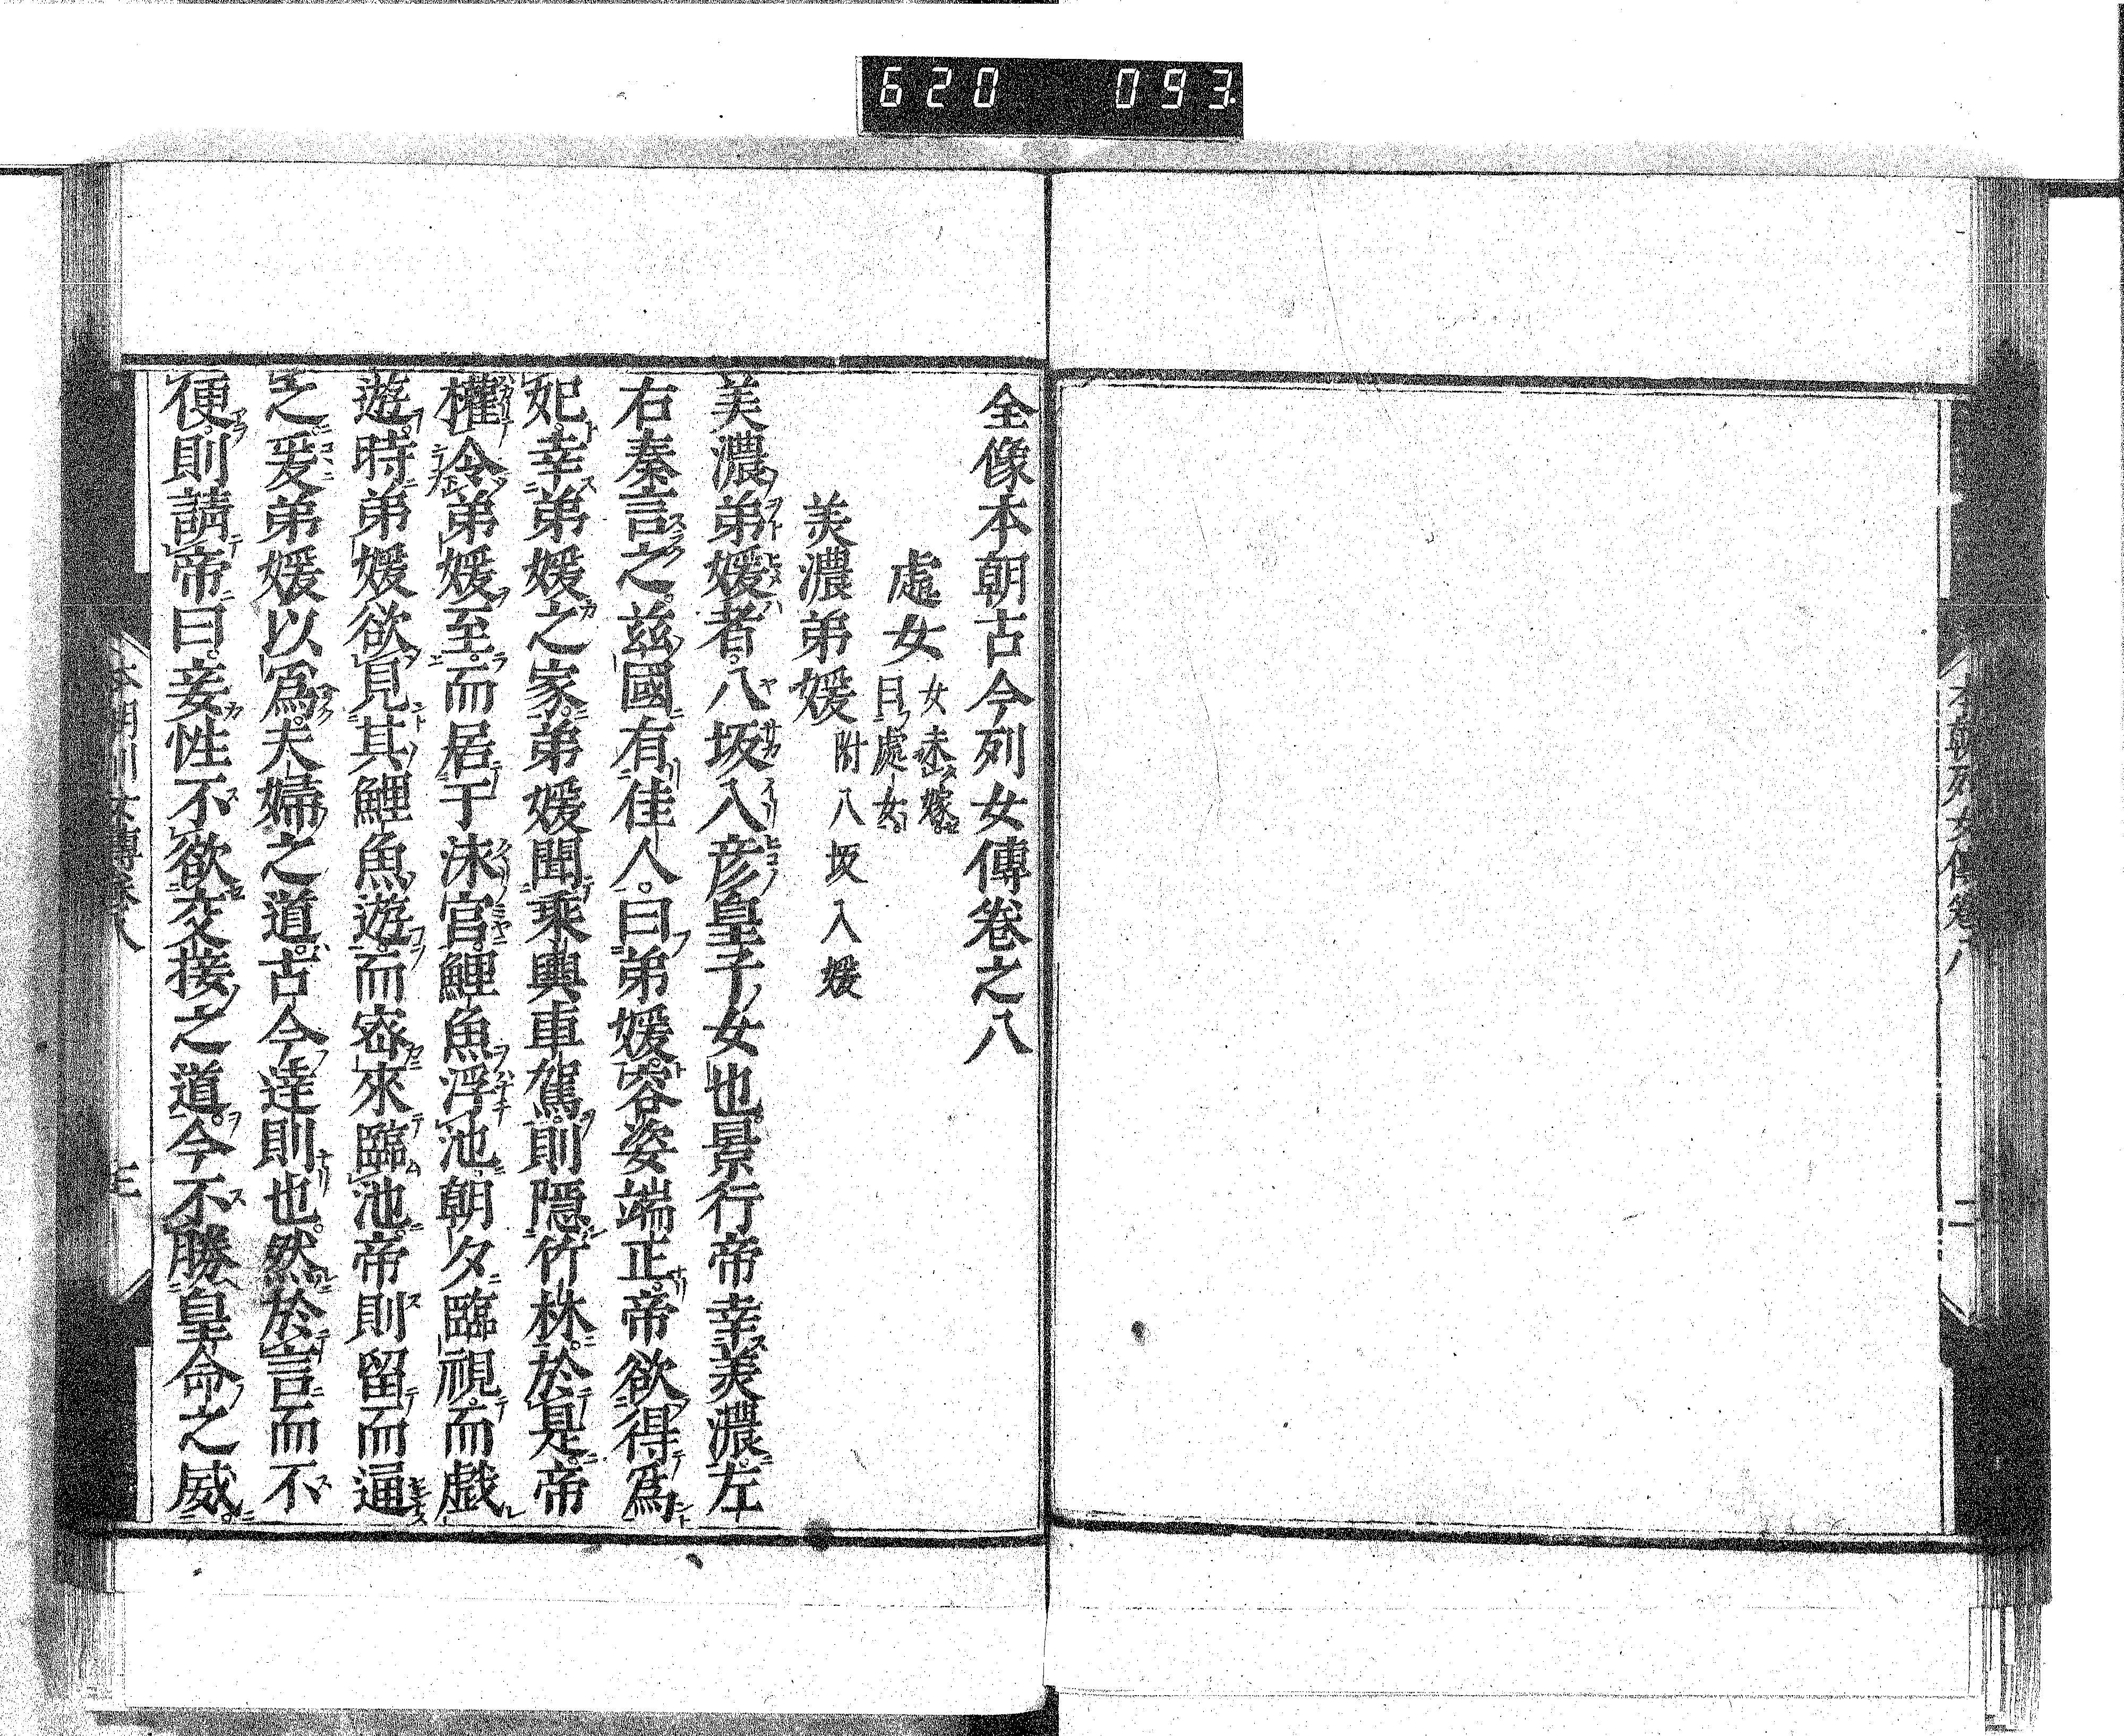 620 093
本朝列女傳卷八
二
全像本朝古今列女傳卷之八
處女 女未嫁曰處女
美濃弟媛 附八坂入媛
美濃弟媛者八坂入彦皇子女也景行帝幸美濃左
右奏言之茲國有佳人曰弟媛容姿端正帝欲得爲
妃幸弟媛之家弟媛聞乘輿車駕則隱竹林於是帝
權令弟媛至而居于泳宮鯉魚浮池朝夕臨視而戯
遊時弟媛欲見其鯉魚遊而密來臨池帝則留而逼
之爰弟媛以爲夫婦之道古今達則也然於言而不
便則請帝曰妾性不欲交接之道今不勝皇命之威
本朝列女傳卷八
三